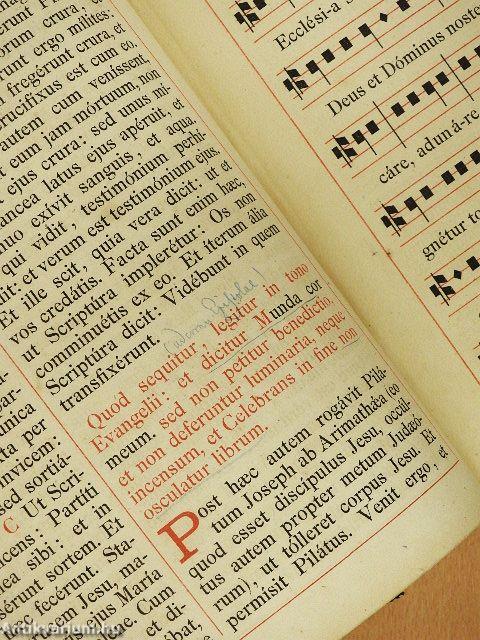 órum crura, et
runt ergo mílites:
fregérunt crura, et
crucifíxus est cum eo.
autem cum veníssent,
eum jam mórtuum, non
ejus crura: sed unus mí-
áncea latus ejus apéruit, et
nuo exívit sanguis, et aqua.
qui vidit, testimónium perhí-
dit: et verum est testimónium ejus.
Et ille scit, quia vera dicit: ut et
vos credátis. Facta sunt enim hæc,
ut Scriptúra implerétur: Os non
comminuétis ex eo. Et íterum ália
Scriptúra dicit: Vidébunt in quem
transfixérunt.
Quod sequitur, legitur in tono
Evangelii: et dicitur Munda cor
meum. sed non petitur benedictio,
et non deferuntur luminaria, neque
incensum, et Celebrans in fine non
osculatur librum.
Post hæc autem rogávit Pilá-
tum Joseph ab Arimathǽa (eo
quod esset discípulus Jesu, occúl-
tus autem propter metum Judæó-
rum), ut tólleret corpus Jesu. Et
permísit Pilátus. Venit ergo, et
par
única
xta per
nvicem:
sed sortiá-
C Ut Scri-
icens: Partíti
ea sibi: et in
érunt sortem. Et
fecérunt. Sta-
em Jesu, ma-
jus María
e. Cum
et di-
bat,
Ecclési-a
Deus et Dóminus noste
cáre, aduná-re
gnétur to
Antikvarium.hu